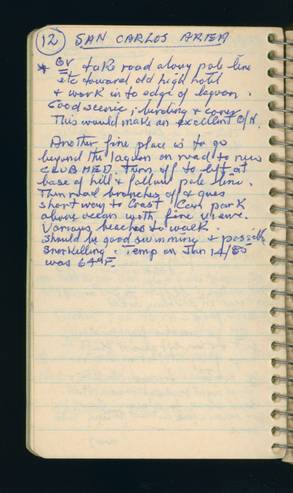 (12) SAN CARLOS AREA
* Or take road along pole line
etc toward old high hotel
& work in to edge of lagoon.
Good scenic, birding & canoe
This would make an excellent
Another fine place is to go
beyond the lagoon on road to new
CLUBMED. Turn off to left at
base of hill & follow pole line.
Then road branches off & goes
short way to coast. Can park
above ocean with fine view.
Various beaches to walk.
Should be good swimming & possib.
Snorkelling. Temp on Jan 14/80
was 64°F.